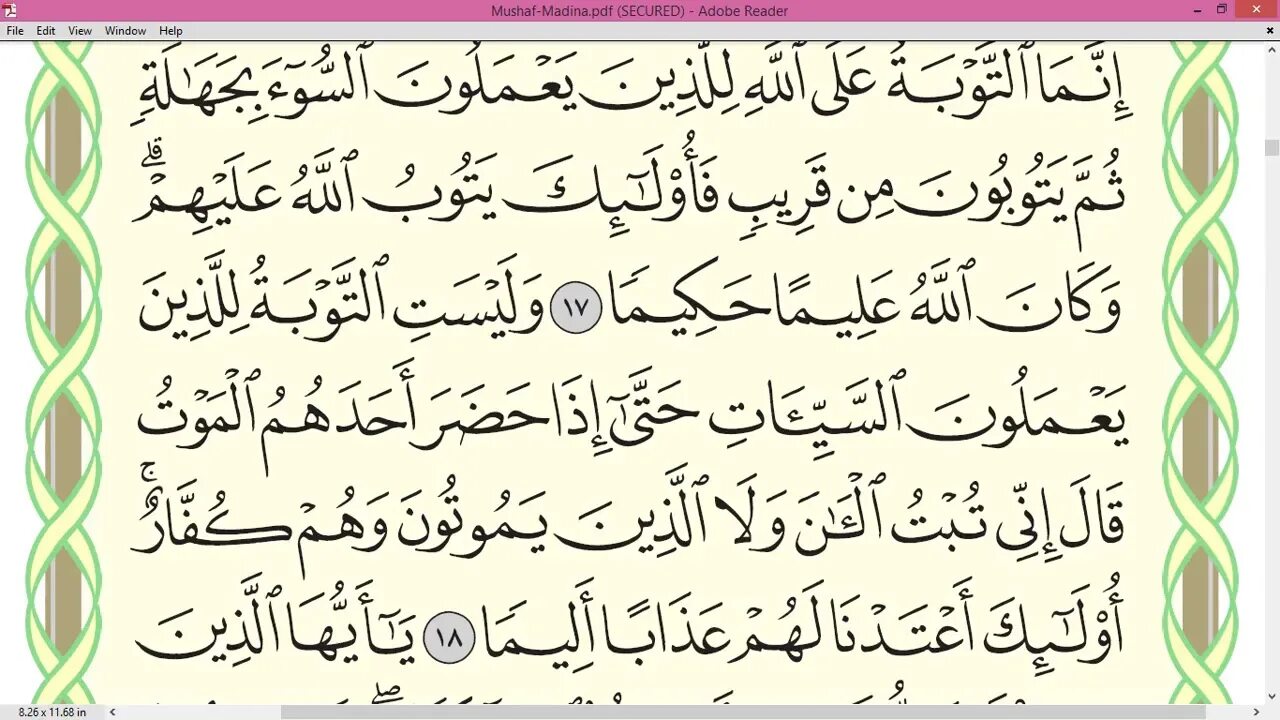 Mushaf-Madina.pdf (SECURED) - Adobe Reader
File Edit View Window Help
إِنَّمَا ٱلتَّوْبَةُ عَلَى ٱللَّهِ لِلَّذِينَ يَعْمَلُونَ ٱلسُّوٓءَ بِجَهَٰلَةٖ
ثُمَّ يَتُوبُونَ مِن قَرِيبٖ فَأُوْلَٰٓئِكَ يَتُوبُ ٱللَّهُ عَلَيْهِمْۗ
وَكَانَ ٱللَّهُ عَلِيمًا حَكِيمٗا ١٧ وَلَيْسَتِ ٱلتَّوْبَةُ لِلَّذِينَ
يَعْمَلُونَ ٱلسَّيِّـَٔاتِ حَتَّىٰٓ إِذَا حَضَرَ أَحَدَهُمُ ٱلْمَوْتُ
قَالَ إِنِّي تُبْتُ ٱلْـَٰٔنَ وَلَا ٱلَّذِينَ يَمُوتُونَ وَهُمْ كُفَّارٌۚ
أُوْلَٰٓئِكَ أَعْتَدْنَا لَهُمْ عَذَابًا أَلِيمٗا ١٨ يَٰٓأَيُّهَا ٱلَّذِينَ
8.26 x 11.68 in